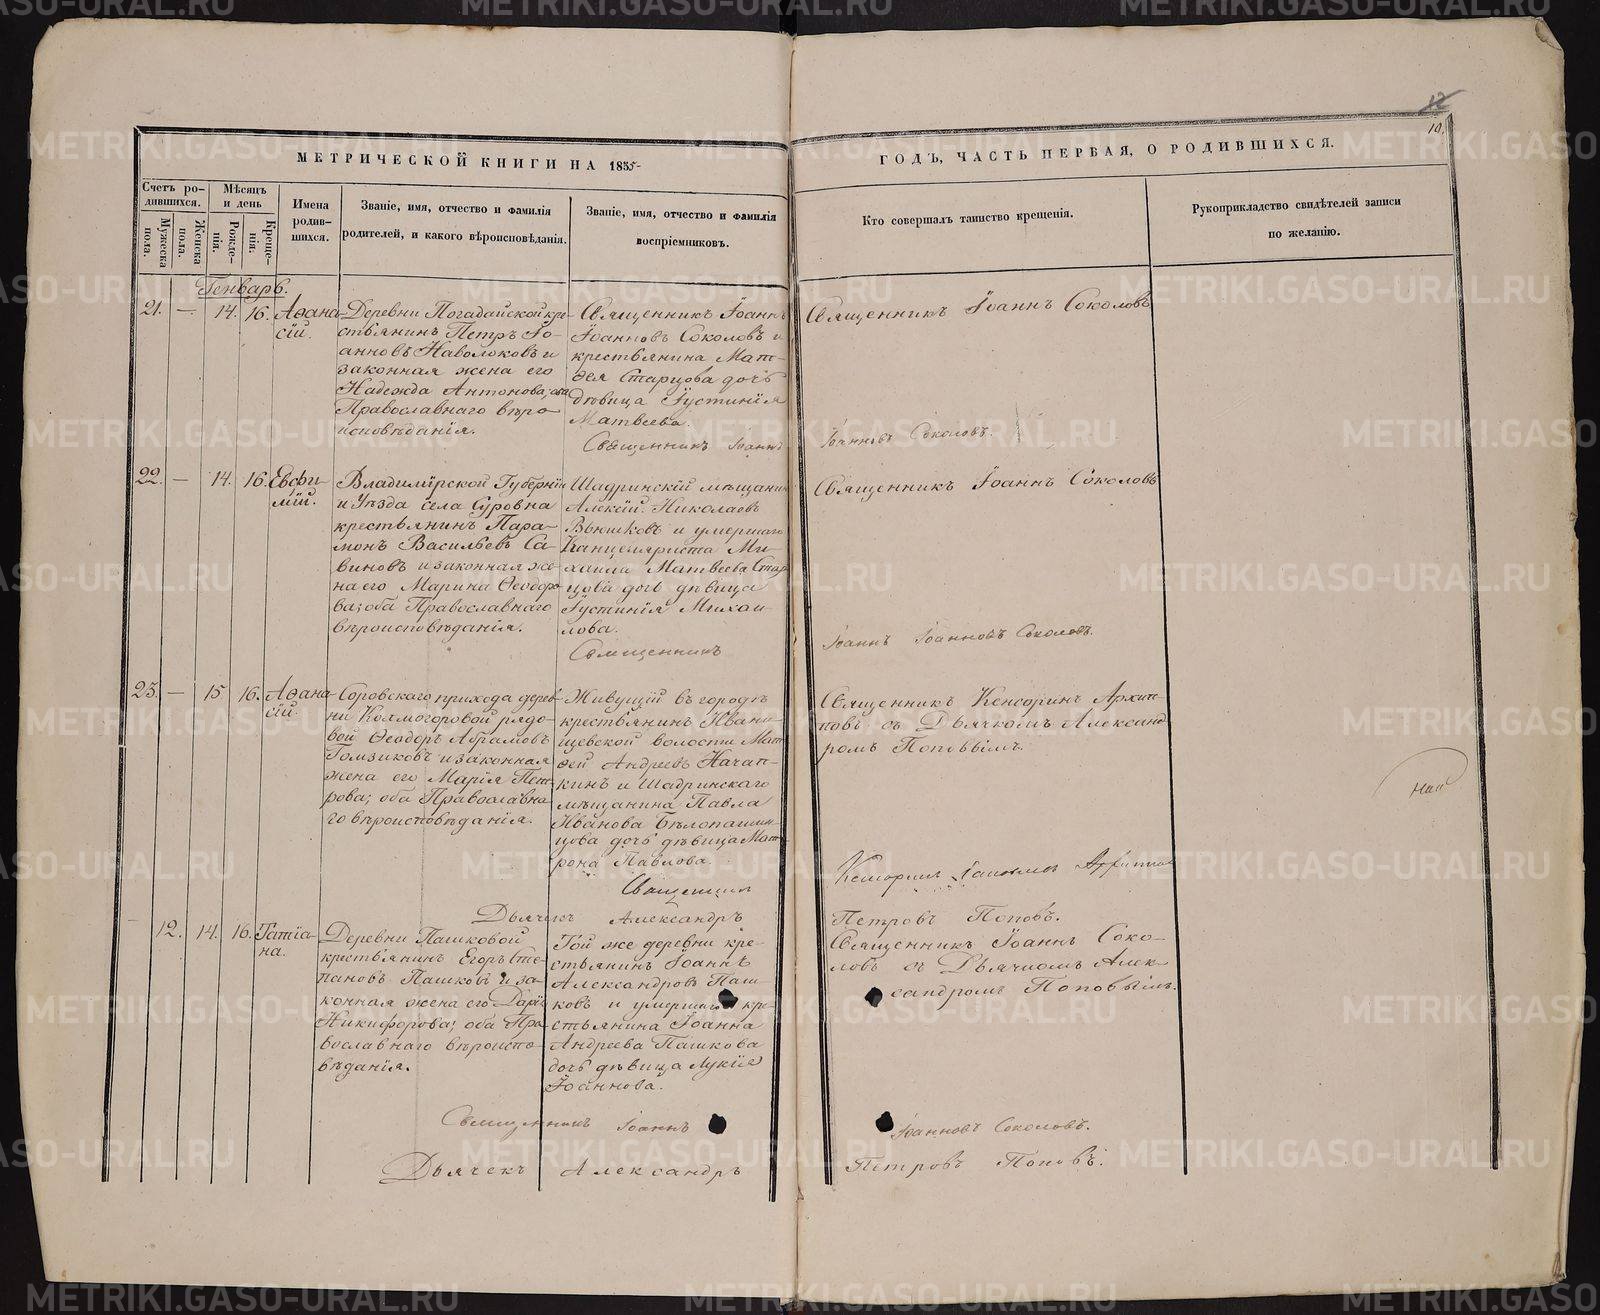 12
10.
МЕТРИЧЕСКОЙ КНИГИ НА 1855
ГОДЪ, ЧАСТЬ ПЕРВАЯ, О РОДИВШИХСЯ.
Счетъ ро-
дившихся.
Мужеска
пола.
Женска
пола.
Мѣсяцъ
и день
Рожде-
нія.
Креще-
нія.
Имена
родив-
шихся.
Званіе, имя, отчество и фамилія
родителей, и какого вѣроисповѣданія.
Званіе, имя, отчество и фамилія
воспріемниковъ.
Кто совершалъ таинство крещенія.
Рукоприкладство свидѣтелей записи
по желанію.
Генварь.
21. — 14. 16. Аѳана-
сій.
Деревни Погадайской кре-
стьянинъ Петръ Іо-
анновъ Наволоковъ и
законная жена его
Надежда Антонова; оба
Православнаго вѣро-
исповѣданія.
Священникъ Іоаннъ
Іоанновъ Соколовъ и
крестьянина Мат-
вея Старцова дочь
дѣвица Іустинія
Матвеева.
Священникъ Іоаннъ Соколовъ
Священникъ Іоаннъ
Іоанновъ Соколовъ.
22. — 14. 16. Евфи-
мій.
Владимірской Губерніи
и Уѣзда села Суровна
крестьянинъ Пара-
монъ Васильевъ Са-
виновъ и законная же-
на его Марина Ѳеодоро-
ва; оба Православнаго
вѣроисповѣданія.
Шадринскій мѣщанинъ
Алексій Николаевъ
Вьюшковъ и умершаго
Канцеляриста Ми-
хаила Матвеева Стар-
цова дочь дѣвица
Іустинія Михаи-
лова.
Священникъ Іоаннъ Соколовъ
Священникъ
Іоаннъ Іоанновъ Соколовъ.
23. — 15 16. Аѳана-
сій.
Соровскаго прихода дерев-
ни Колмогоровой рядо-
вой Ѳеодоръ Абрамовъ
Гомзиковъ и законная
жена его Марія Пет-
рова; оба Православна-
го вѣроисповѣданія.
Живущій въ городѣ
крестьянинъ Ивани-
щевской волости Мат-
вей Андреевъ Качап-
кинъ и Шадринскаго
мѣщанина Павла
Иванова Бѣлопашин-
цова дочь дѣвица Мат-
рона Павлова.
Священникъ Кенсоринъ Архип-
повъ съ Дьячкомъ Александ-
ромъ Поповымъ.
Священникъ
Кенсоринъ
Дьячекъ Александръ
Петровъ Поповъ.
— 12. 14. 16. Татіа-
на.
Деревни Пашковой
крестьянинъ Егоръ Сте-
пановъ Пашковъ и за-
конная жена его Дарія
Никифорова; оба Пра-
вославнаго вѣроиспо-
вѣданія.
Той же деревни кре-
стьянинъ Іоаннъ
Александровъ Паш-
ковъ и умершаго кре-
стьянина Іоанна
Андреева Пашкова
дочь дѣвица Лукія
Іоаннова.
Священникъ Іоаннъ Соко-
ловъ съ Дьячкомъ Алек-
сандромъ Поповымъ.
Священникъ Іоаннъ
Іоанновъ Соколовъ.
Дьячекъ Александръ
Петровъ Поповъ.
METRIKI.GASO-URAL.RU